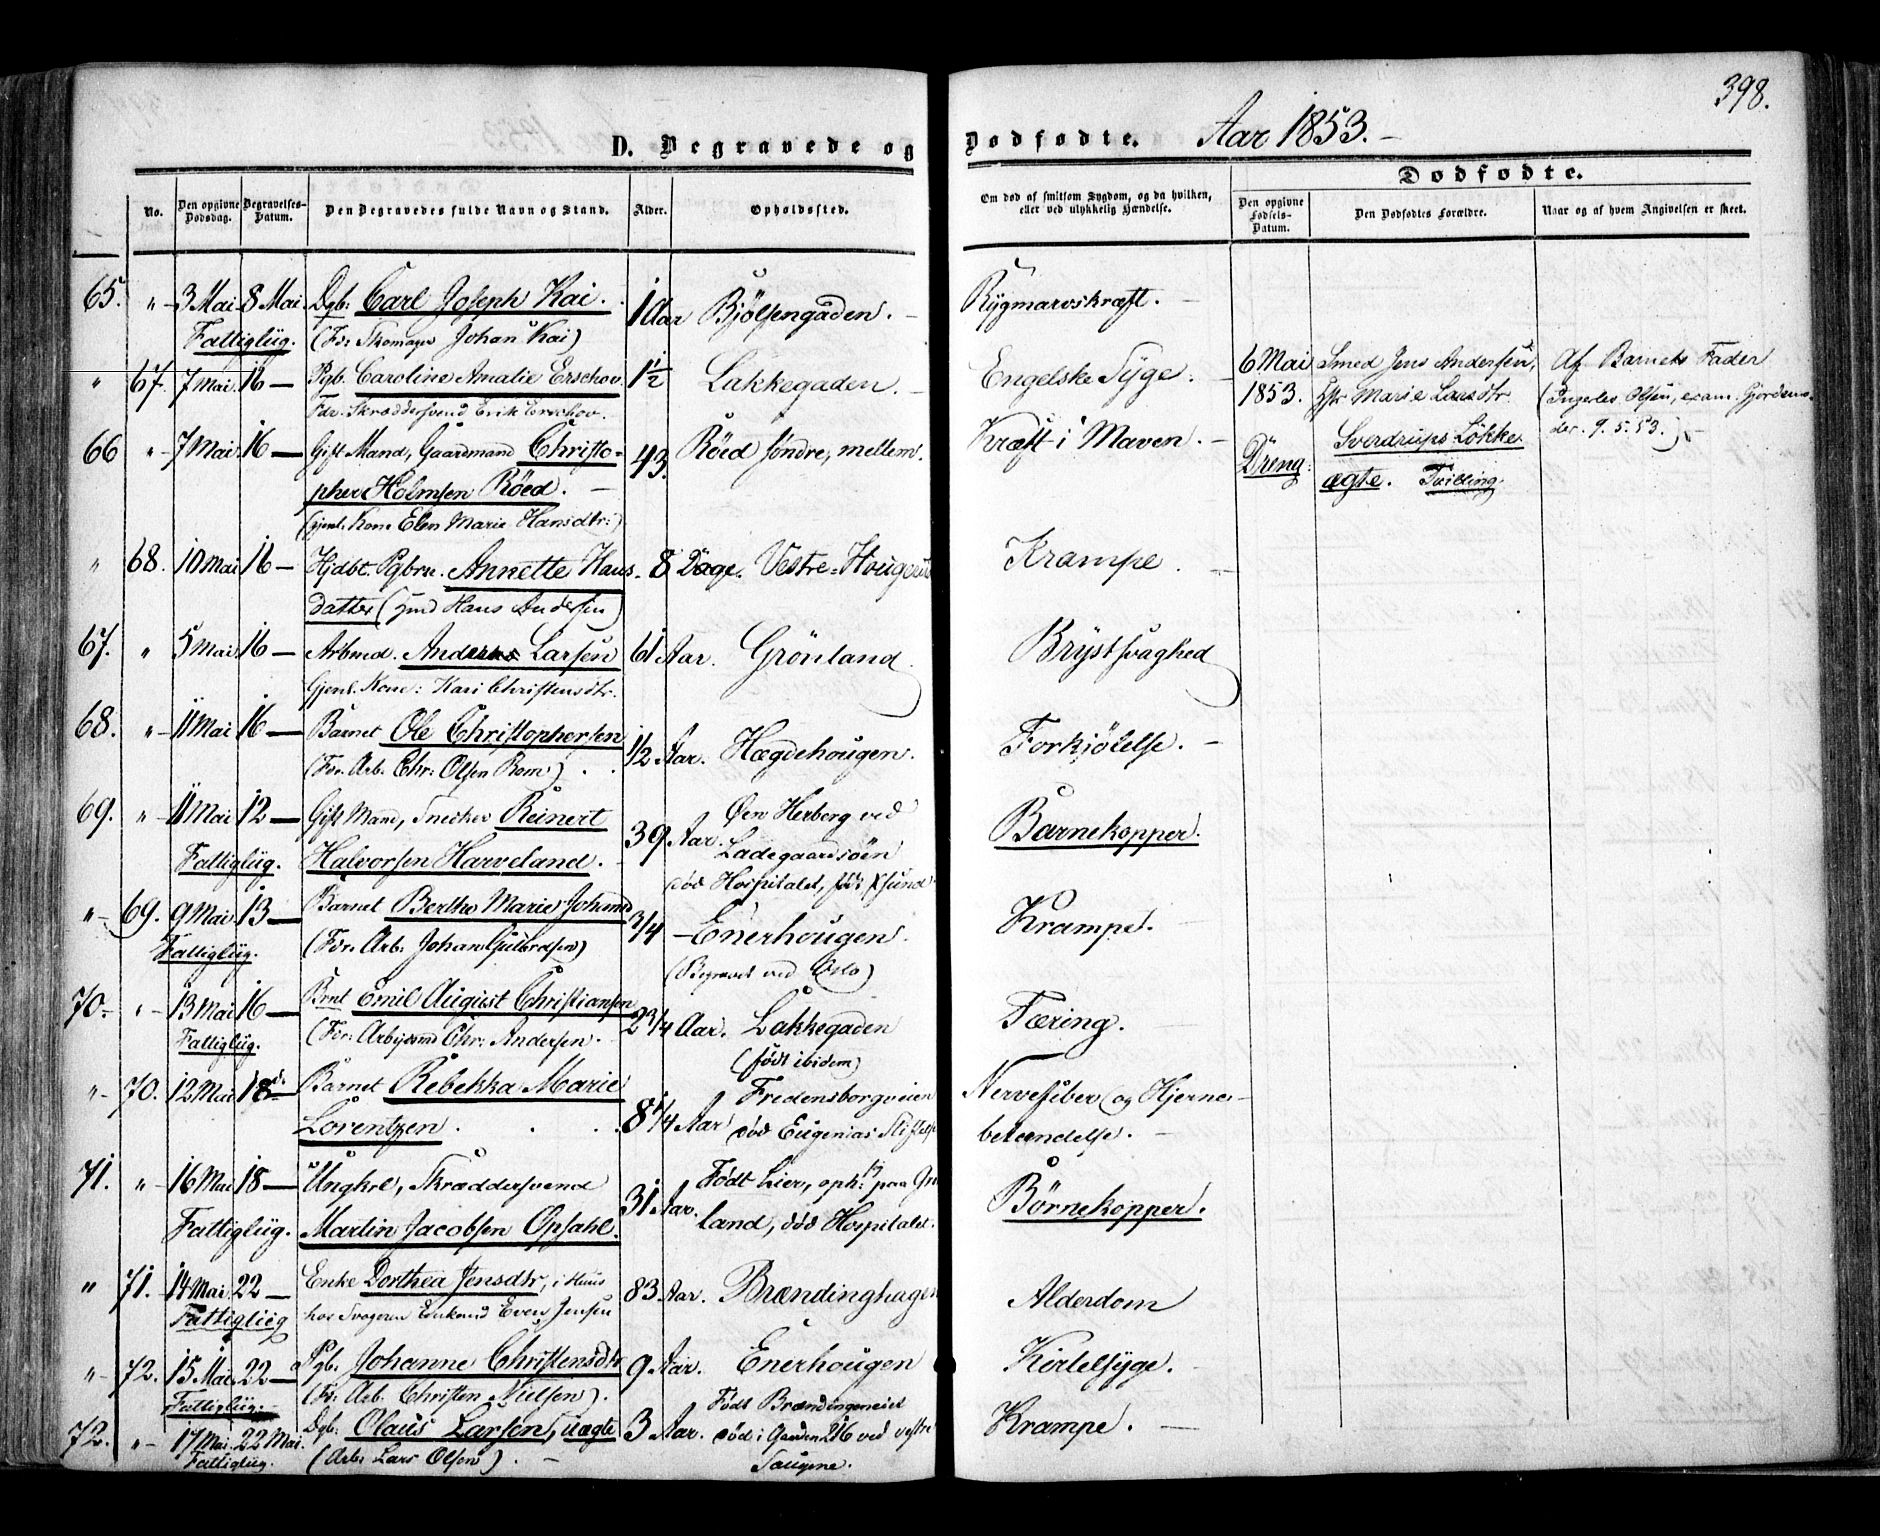 398.
D. Begravede og Dødfødte. Aar 1853.-
Dødfødte.
No. Den opgivne Dødsdag. Begravelses-Datum. Den Begravedes fulde Navn og Stand. Alder. Opholdssted. Om død af smitsom Sygdom, og da hvilken, eller ved ulykkelig Hændelse. Den opgivne Fødsels-Datum. Den Dødfødtes Forældre. Naar og af hvem Angivelsen er skeet.
65. "- 3 Mai 8 Mai Dgb: Carl Joseph Kai. 1 Aar Bjölsengaden. - Rygmarvskræft. -
Fattigliig. (Fdr Skomager Johan Kai)
" 67. 7 Mai. 16 - Pgb. Caroline Amalie Erschov 1 1/2 Lakkegaden. - Engelske Syge. - 6 Mai Smed Jens Andersen, Af Barnets Fader
Fdr. Skræddersvend Erik Erschov. 1853. Marie Larsdtr. (Ingerles Olsen, exam. Gjordemo-
der. 9. 5. 53.)
66 "- 7 Mai 16 - Gift Mand, Gaardmand Christo- 43. Röed söndre, mellem. Kræft i Maven. - Dreng: Sverdrups Lökke
pher Holmsen Röed. - ægte. Tvilling.
(gjenl. Kone Elen Marie Hansdtr:)
" 68. 10 Mai 16 - Hjdbt. Pgbrn. Annette Hans- 8 Dage. Vestre-Hougen Krampe. -
datter ( Hans Andersen)
67. " 5 Mai 16 - Arbmd. Anders Larsen 61 Aar. Grönland. Brystsvaghed
Gjenl. Kone: Kari Christensdtr.
68. "- 11 Mai 16 - Barnet Ole Christophersen 1/2 Aar. Hægdehougen. Forkjölelse. -
(For. Arb. Chr: Olsen Rom)
69. "- 11 Mai 12 - Gift Mand, Snecker Reinert 39 Aar. Øen Herberg ved Barnekopper.
Fattigliig. Halvorsen Harveland. Ladegaardsöen
død Hospitalet, født
"- 69. 9 Mai 13 - Barnet Berthe Marie Johansd 3/4 - Enerhougen. Krampe.
Fattigliig. (For. Arb: Johan Gulbrdsen) (Begravet ved Oslo)
70.- "- 13 Mai 16 - Brnt Emil August Christiansen 2 3/4 Aar. Lakkegaden Tæring.
Fattigliig. (For: Arbejdsmd Chr: Andersen. - (født ibidem)
"- 70. 12 Mai 18 d. Barnet Rebekka Marie 8 1/4 Aar Fredensborgveien Nervefeber og Hjerne-
Lorentzen. død Eugenias Stiftelse betændelse. -
71. "- 16 Mai 18 - Ungkrl, Skræddersvend 31 Aar. Født Lier, oph: paa Grn Børnekopper.
Fattigliig. Martin Jacobsen Opsahl. land, död Hospitalet.
" 71. 14 Mai. 22 - Enke Dorthea Jensdtr, i Huus 83 Aar. Brændinghagen Alderdom
Fattigliig hos Svogeren Enkemd Even Jensen
"- 72. 15 Mai 22 - Pgb. Johanne Christensdtr 9 Aar. Enerhougen Kirtelsyge. -
Fattigliig. - (Fr: Arb. Christen Nielsen).
72. "- 17 Mai. 22 Mai. Dgb: Olaus Larsen, uægte 3 Aar. Født Brændingeneiet Krampe. -
Fattigliig. (Arb: Lars Olsen). - død i Gaarden 216 ved vestre
Saugene.